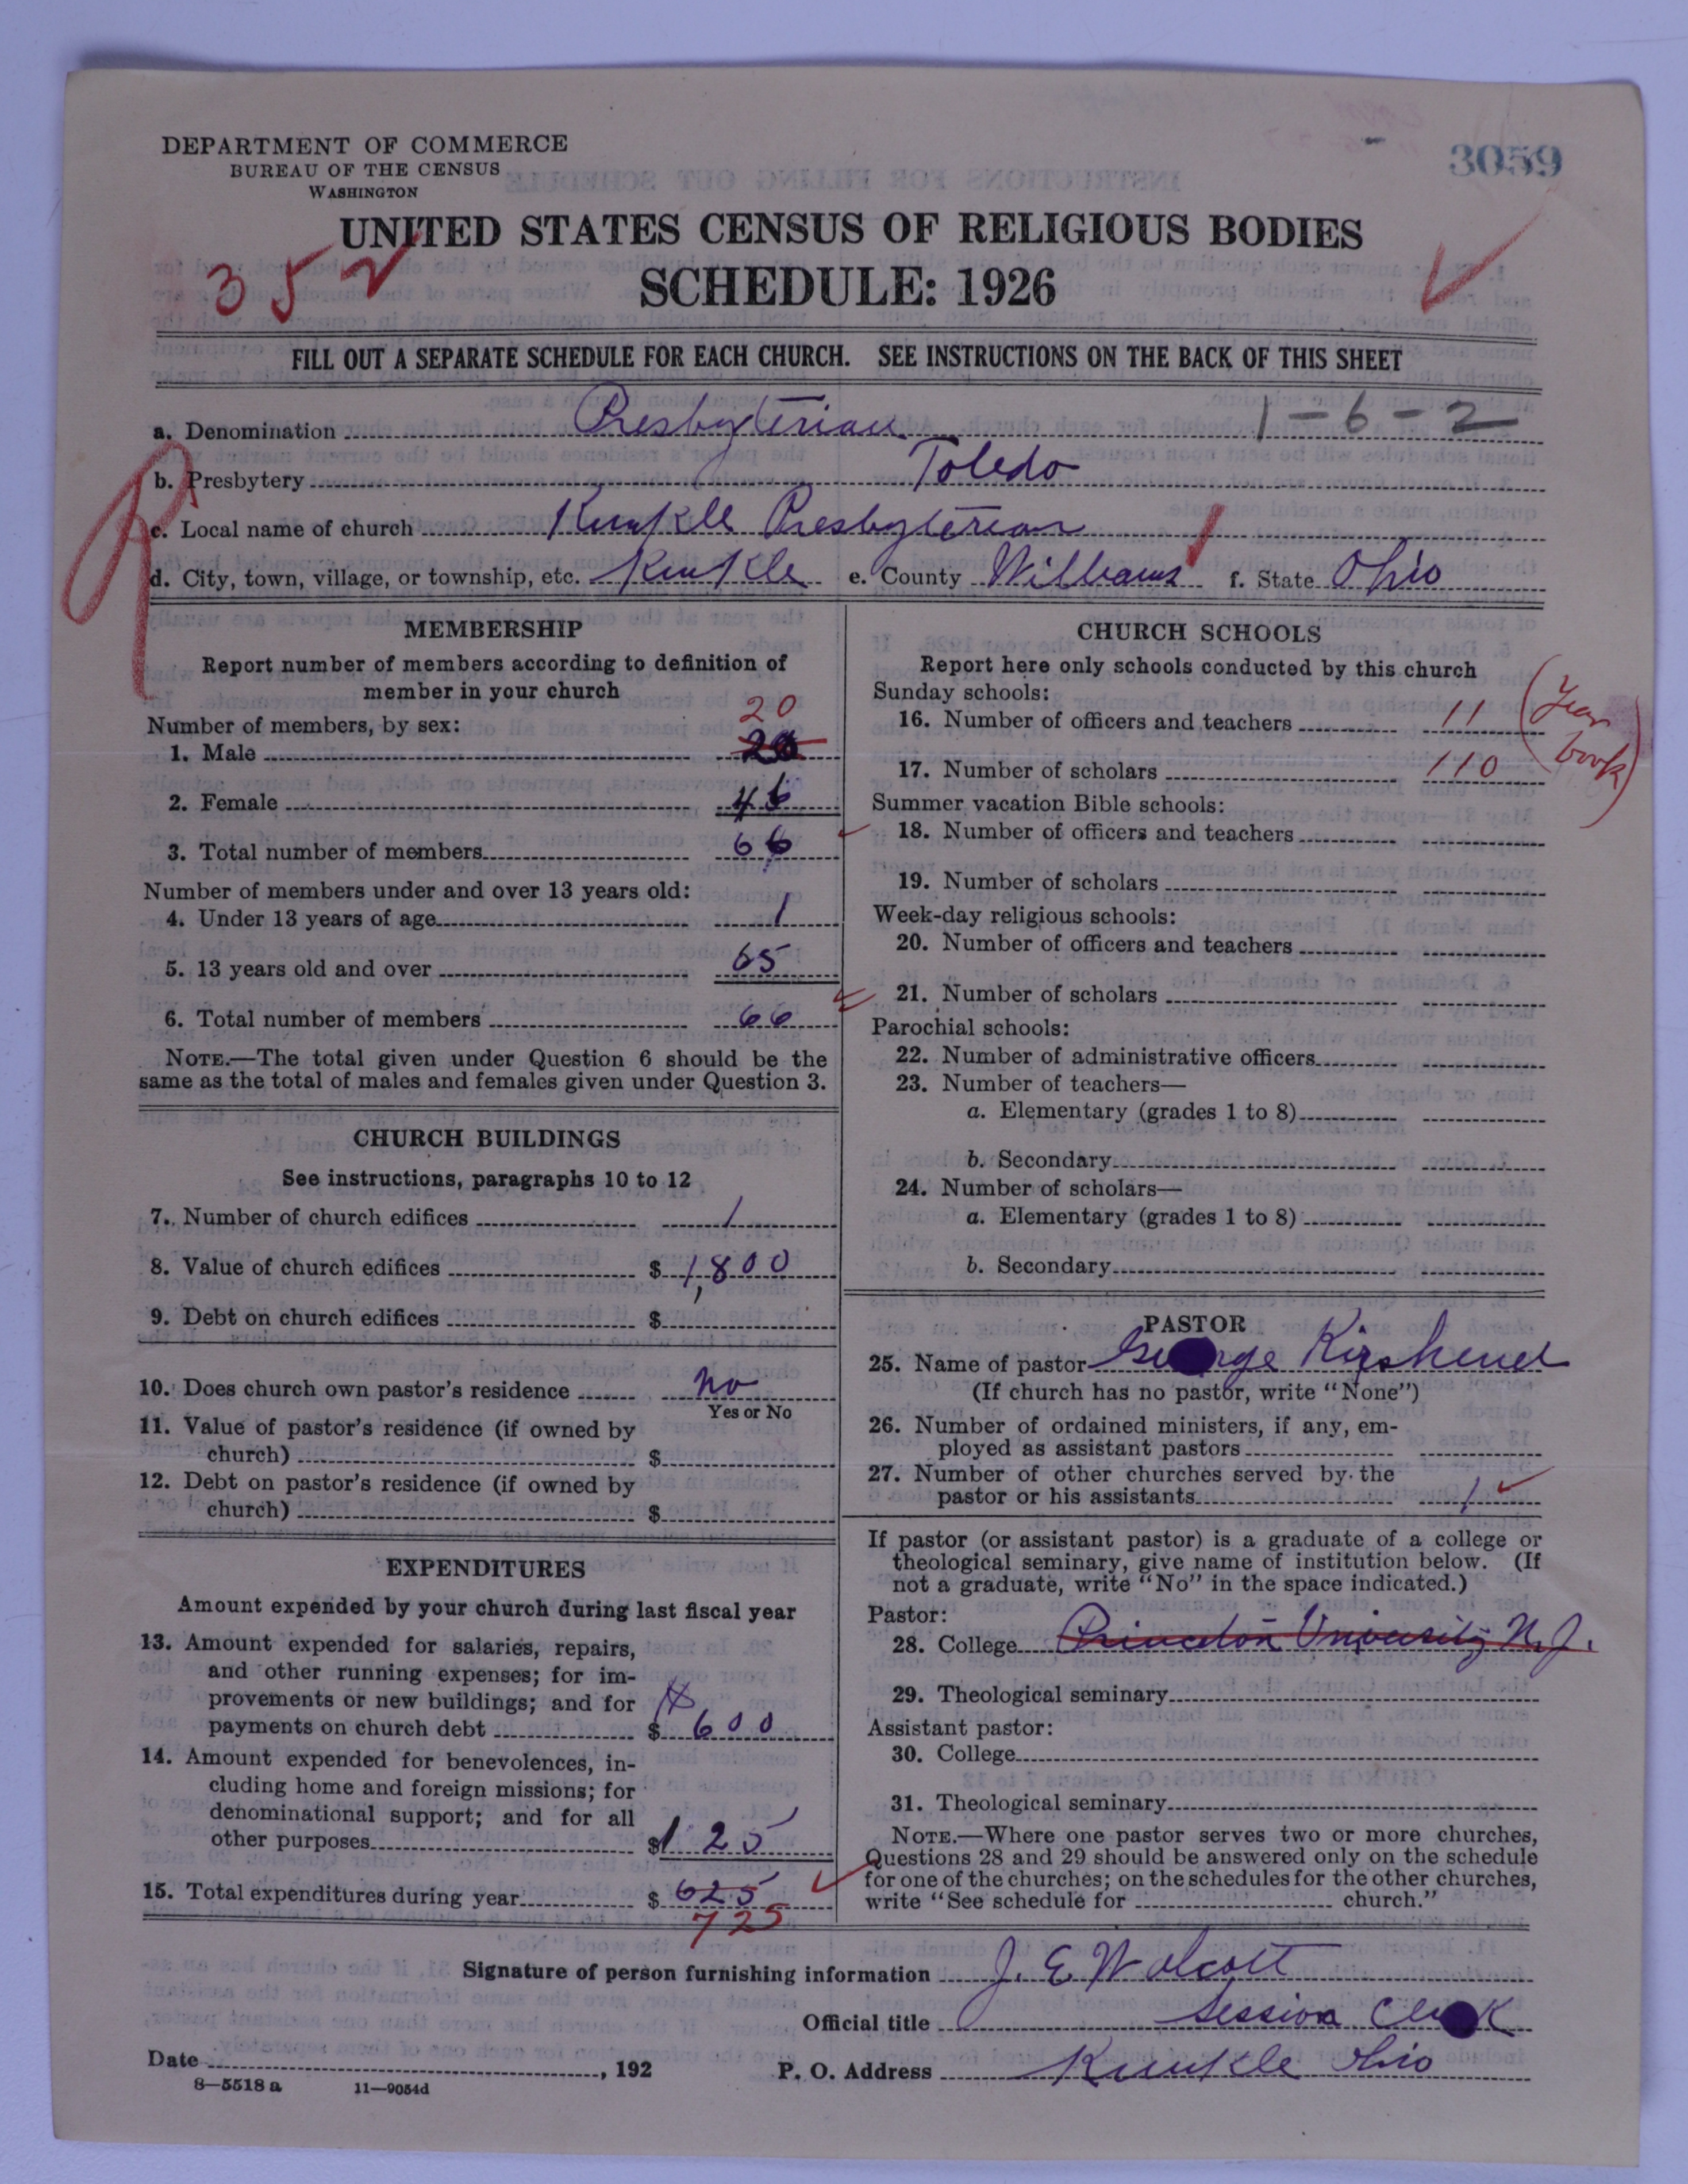 DEPARTMENT OF COMMERCE
BUREAU OF THE CENSUS
WASHINGTON
3059
UNITED STATES CENSUS OF RELIGIOUS BODIES
SCHEDULE: 1926
352
FILL OUT A SEPARATE SCHEDULE FOR EACH CHURCH. SEE INSTRUCTIONS ON THE BACK OF THIS SHEET
a. Denomination Presbyterian 1-6-2
b. Presbytery Toledo
c. Local name of church Kunkle Presbyterian
d. City, town, village, or township, etc. Kunkle e. County Williams f. State Ohio
R
MEMBERSHIP
Report number of members according to definition of
member in your church
Number of members, by sex:
20
1. Male 20
2. Female 46
3. Total number of members 66
Number of members under and over 13 years old:
4. Under 13 years of age 1
5. 13 years old and over 65
6. Total number of members 66
NOTE.—The total given under Question 6 should be the
same as the total of males and females given under Question 3.
CHURCH BUILDINGS
See instructions, paragraphs 10 to 12
7. Number of church edifices 1
8. Value of church edifices $ 1,800
9. Debt on church edifices $
10. Does church own pastor's residence no
Yes or No
11. Value of pastor's residence (if owned by
church) $
12. Debt on pastor's residence (if owned by
church) $
EXPENDITURES
Amount expended by your church during last fiscal year
13. Amount expended for salaries, repairs,
and other running expenses; for im-
provements or new buildings; and for
payments on church debt $ 600
14. Amount expended for benevolences, in-
cluding home and foreign missions; for
denominational support; and for all
other purposes $ 125
15. Total expenditures during year $ 625
725
CHURCH SCHOOLS
Report here only schools conducted by this church
Sunday schools:
16. Number of officers and teachers 11 (Year
17. Number of scholars 110 book)
Summer vacation Bible schools:
18. Number of officers and teachers
19. Number of scholars
Week-day religious schools:
20. Number of officers and teachers
21. Number of scholars
Parochial schools:
22. Number of administrative officers
23. Number of teachers—
a. Elementary (grades 1 to 8)
b. Secondary
24. Number of scholars—
a. Elementary (grades 1 to 8)
b. Secondary
PASTOR
25. Name of pastor George
(If church has no pastor, write "None")
26. Number of ordained ministers, if any, em-
ployed as assistant pastors
27. Number of other churches served by the
pastor or his assistants 1
If pastor (or assistant pastor) is a graduate of a college or
theological seminary, give name of institution below. (If
not a graduate, write "No" in the space indicated.)
Pastor:
28. College Princeton University N.J.
29. Theological seminary
Assistant pastor:
30. College
31. Theological seminary
NOTE.—Where one pastor serves two or more churches,
Questions 28 and 29 should be answered only on the schedule
for one of the churches; on the schedules for the other churches,
write "See schedule for church."
Signature of person furnishing information J. E. Wolcott
Official title Session Clerk
Date , 192 P. O. Address Kunkle Ohio
8—5518 a 11—9054d